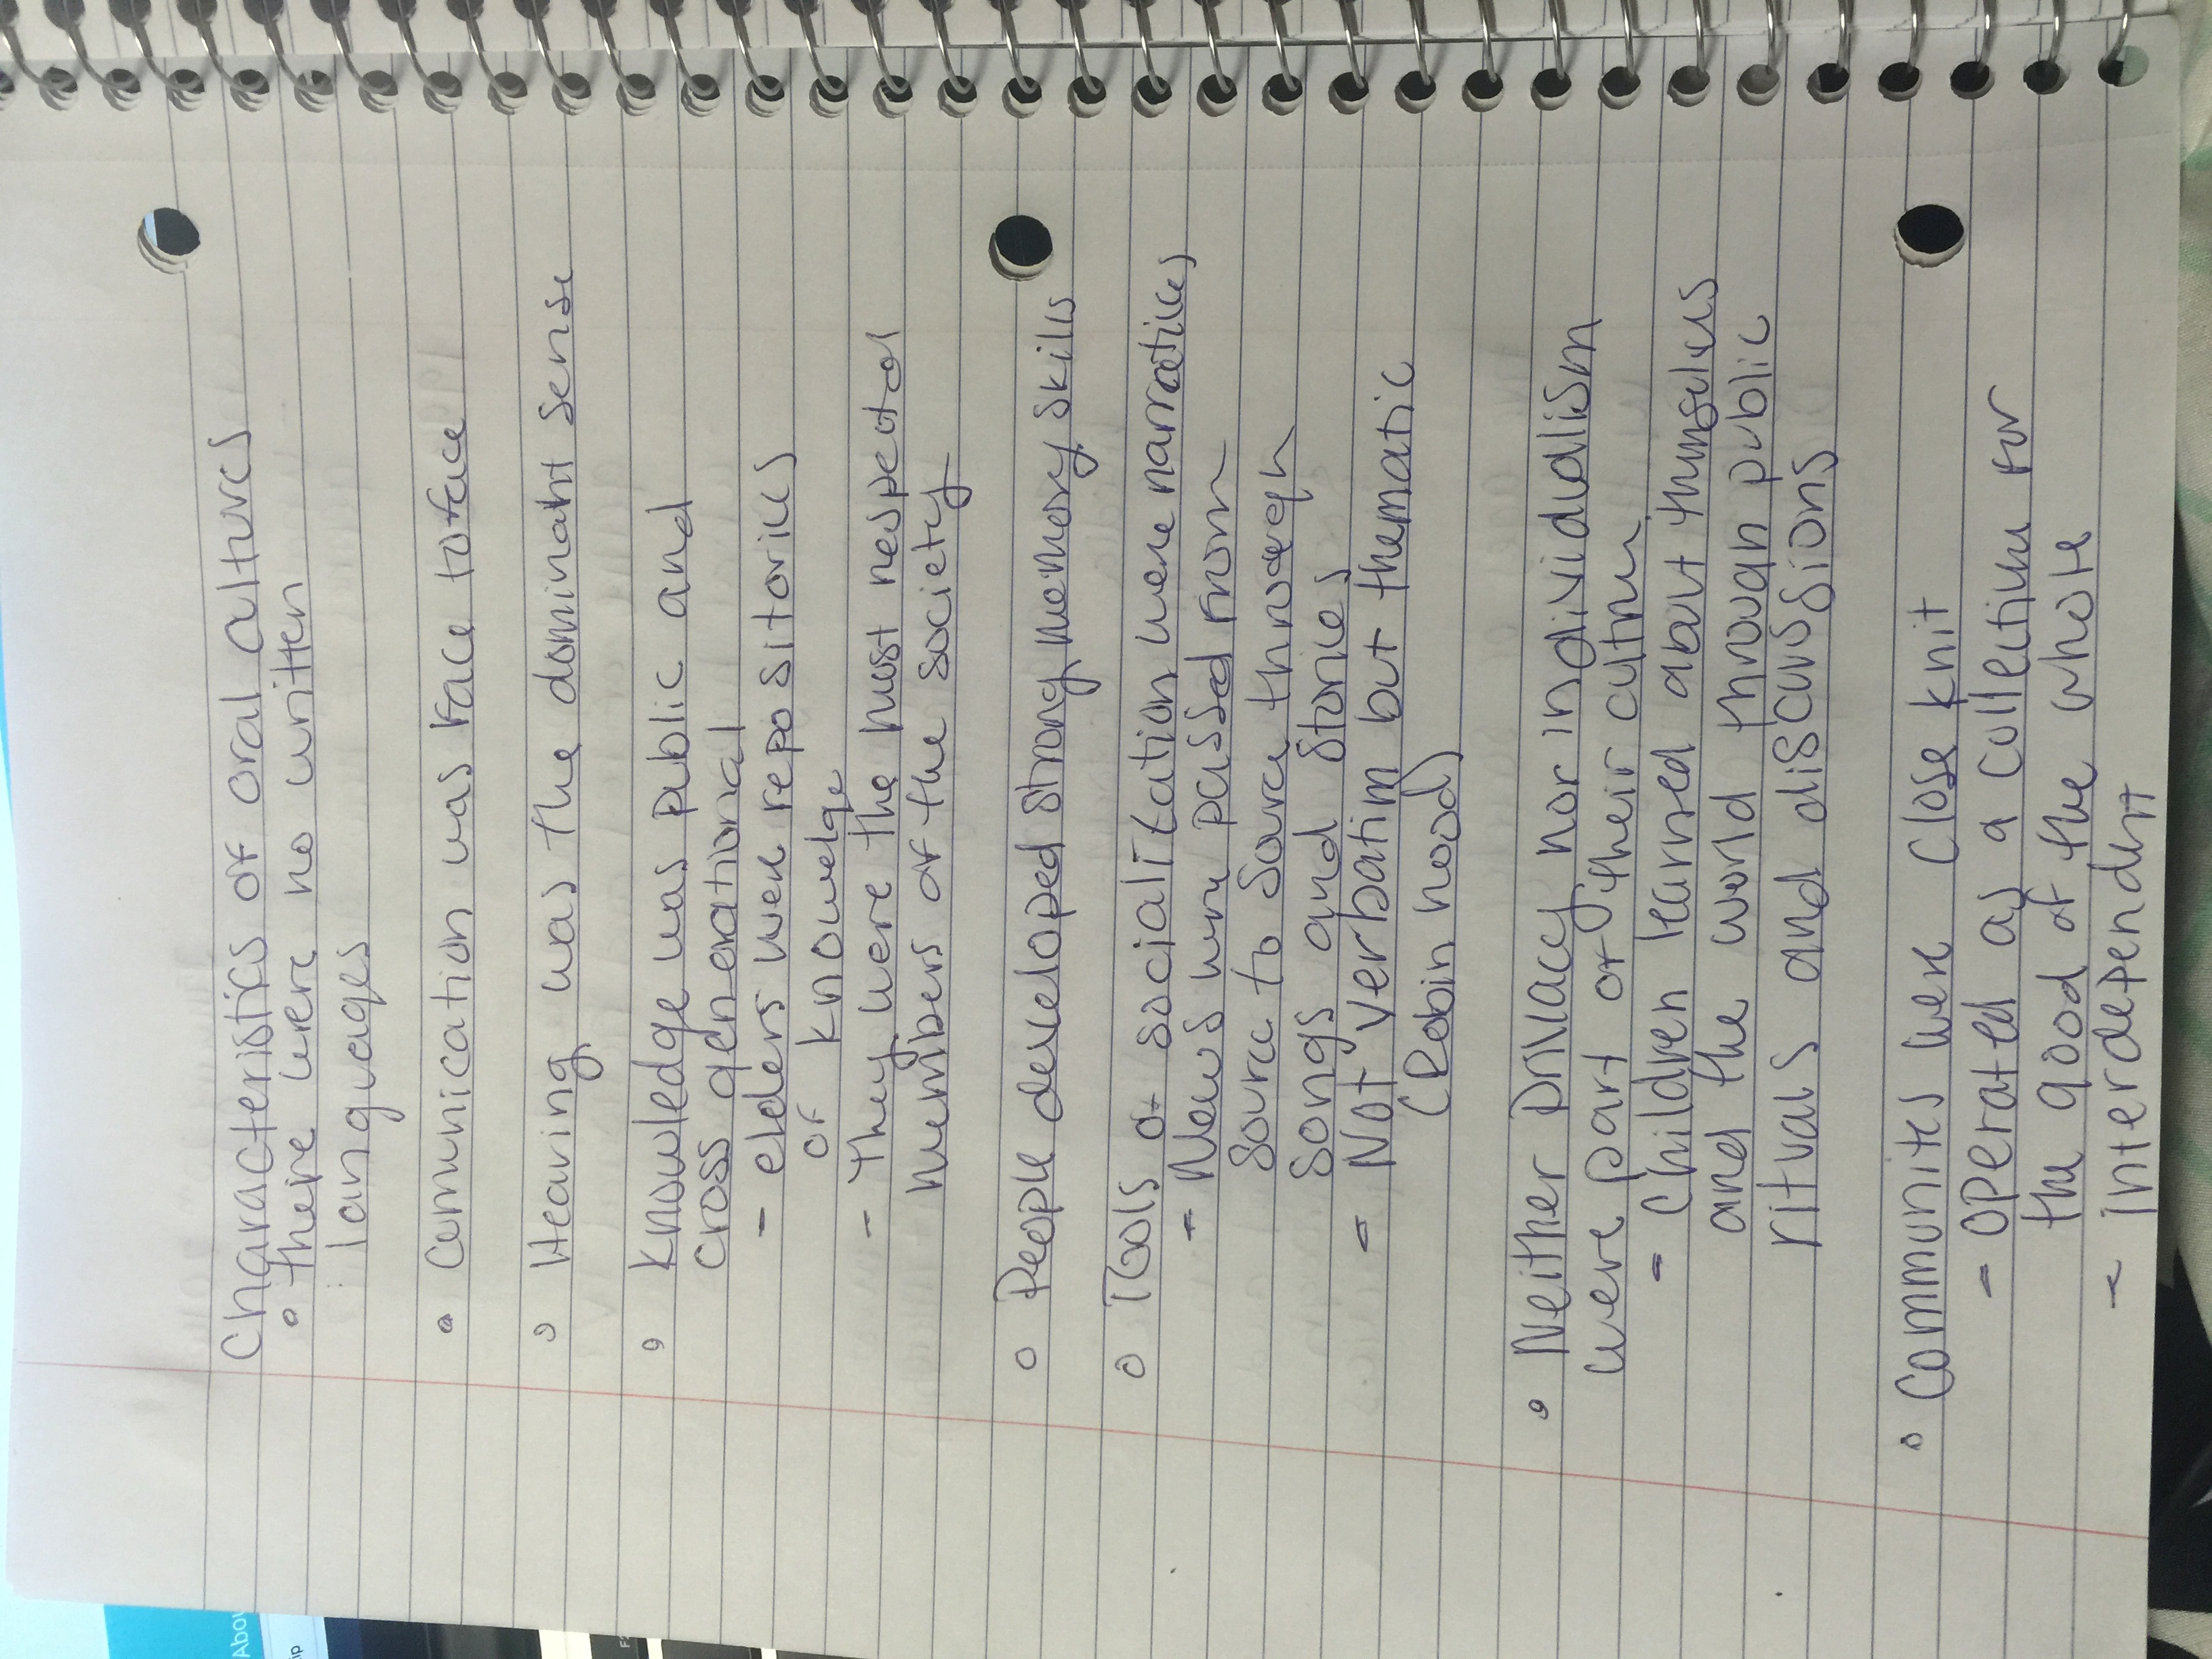 Characteristics of oral cultures
• there were no written
languages
• Communication was face to face
• Hearing was the dominant sense
• Knowledge was public and
cross generational
- elders were repositories
of knowelge
- They were the most respected
members of the society
• People developed strong memory skills
• Tools of socialization were narratives
- News were passed from
source to source through
songs and stories
- Not verbatim but thematic
(Robin hood)
• Neither privacy nor individualism
were part of their culture
- Children learned about themselves
and the world through public
rituals and discussions
• Communites were close knit
- operated as a collective for
the good of the whole
- Interdependent
Abou
ip
F2